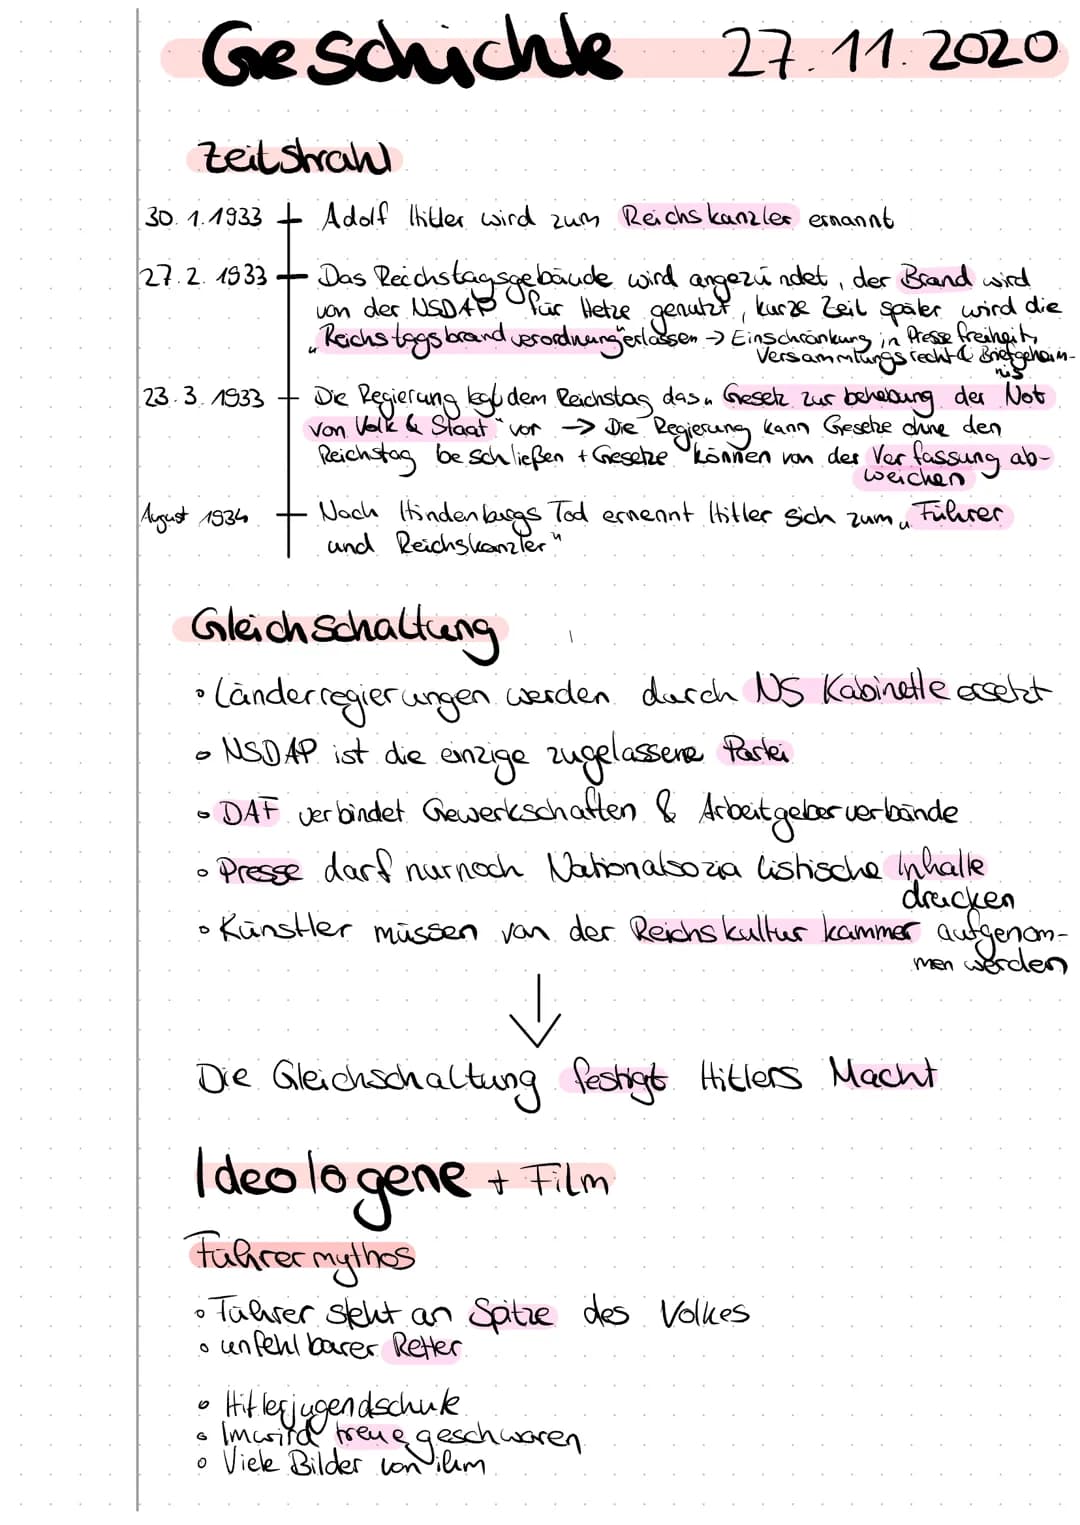 Geschichte 27.11.2020
Zeitstrahl
30.1.1933 Adolf Hitler wird zum Reichskanzler ernannt
27.2.1933 Das Reichstagsgebäude wird angezündet, der Brand wird
von der NSDAP für Hetze genutzt, kurze Zeit später wird die
„Reichstagsbrandverordnung" erlassen → Einschränkung in Pressefreiheit,
Versammlungsrecht & Briefgeheim-
nis
23.3.1933 Die Regierung legt dem Reichstag das „Gesetz zur behebung der Not
von Volk & Staat" vor → Die Regierung kann Gesetze ohne den
Reichstag beschließen + Gesetze können von der Verfassung ab-
weichen
August 1934 Nach Hindenburgs Tod ernennt Hitler sich zum „Führer
und Reichskanzler"
Gleichschaltung
• Länderregierungen werden durch NS Kabinette ersetzt
• NSDAP ist die einzige zugelassene Partei
• DAF verbindet Gewerkschaften & Arbeitgeberverbände
• Presse darf nurnoch Nationalsozialistische Inhalte
drucken
• Künstler müssen von der Reichskulturkammer aufgenom-
men werden
↓
Die Gleichschaltung festigt Hitlers Macht
Ideologene + Film
Führermythos
• Führer steht an Spitze des Volkes
• unfehlbarer Retter
• Hitlerjugendschule
• Im wird treue geschworen
• Viele Bilder von ihm